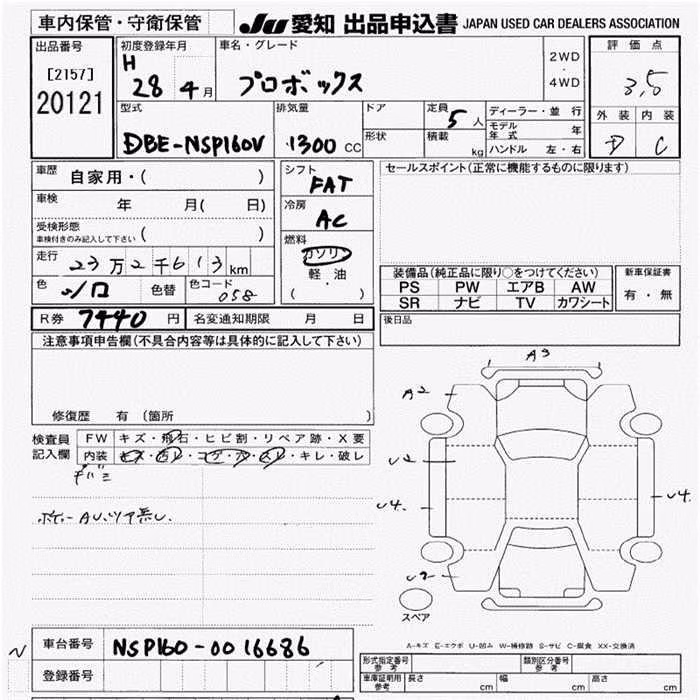 車内保管・守衛保管 JU 愛知 出品申込書 JAPAN USED CAR DEALERS ASSOCIATION
出品番号 初度登録年月 車名・グレード 評価点
[2157] H 28 4月 プロボックス 2WD・4WD 3,5
20121
型式 排気量 ドア 定員 5人 ディーラー・並行 外装 内装
DBE-NSP160V 1300 CC 形状 積載 kg モデル年式 年 D C
ハンドル 左・右
車歴 自家用・( ) シフト FAT セールスポイント(正常に機能するものに限ります)
車検 年 月( 日) 冷房 AC
受検形態 ( )
車検付きのみ記入して下さい
走行 23万2千613km 燃料 ガソリン
軽油
( ・ )
装備品(純正品に限り○をつけてください) 新車保証書
色 シロ 色替 色コード 058 PS PW エアB AW 有・無
SR ナビ TV カワシート
R券 7440円 名変通知期限 月 日 後日品
注意事項申告欄(不具合内容等は具体的に記入して下さい)
修復歴 有(箇所 )
検査員記入欄 FW キズ・飛石・ヒビ割・リペア跡・X要
内装 キズ・汚レ・コゲ・穴・スレ・キレ・破レ
ボデーAU、ツヤ無し
A3
A2
U2
U4.
U4.
U2
スペア
A-キズ E-エクボ U-凹み W-補修跡 S-サビ C-腐食 XX-交換済
車台番号 NSP160-0016686
登録番号
形式指定番号 参考 類別区分番号 参考
車庫証明用 参考 長さ cm 幅 cm 高さ cm